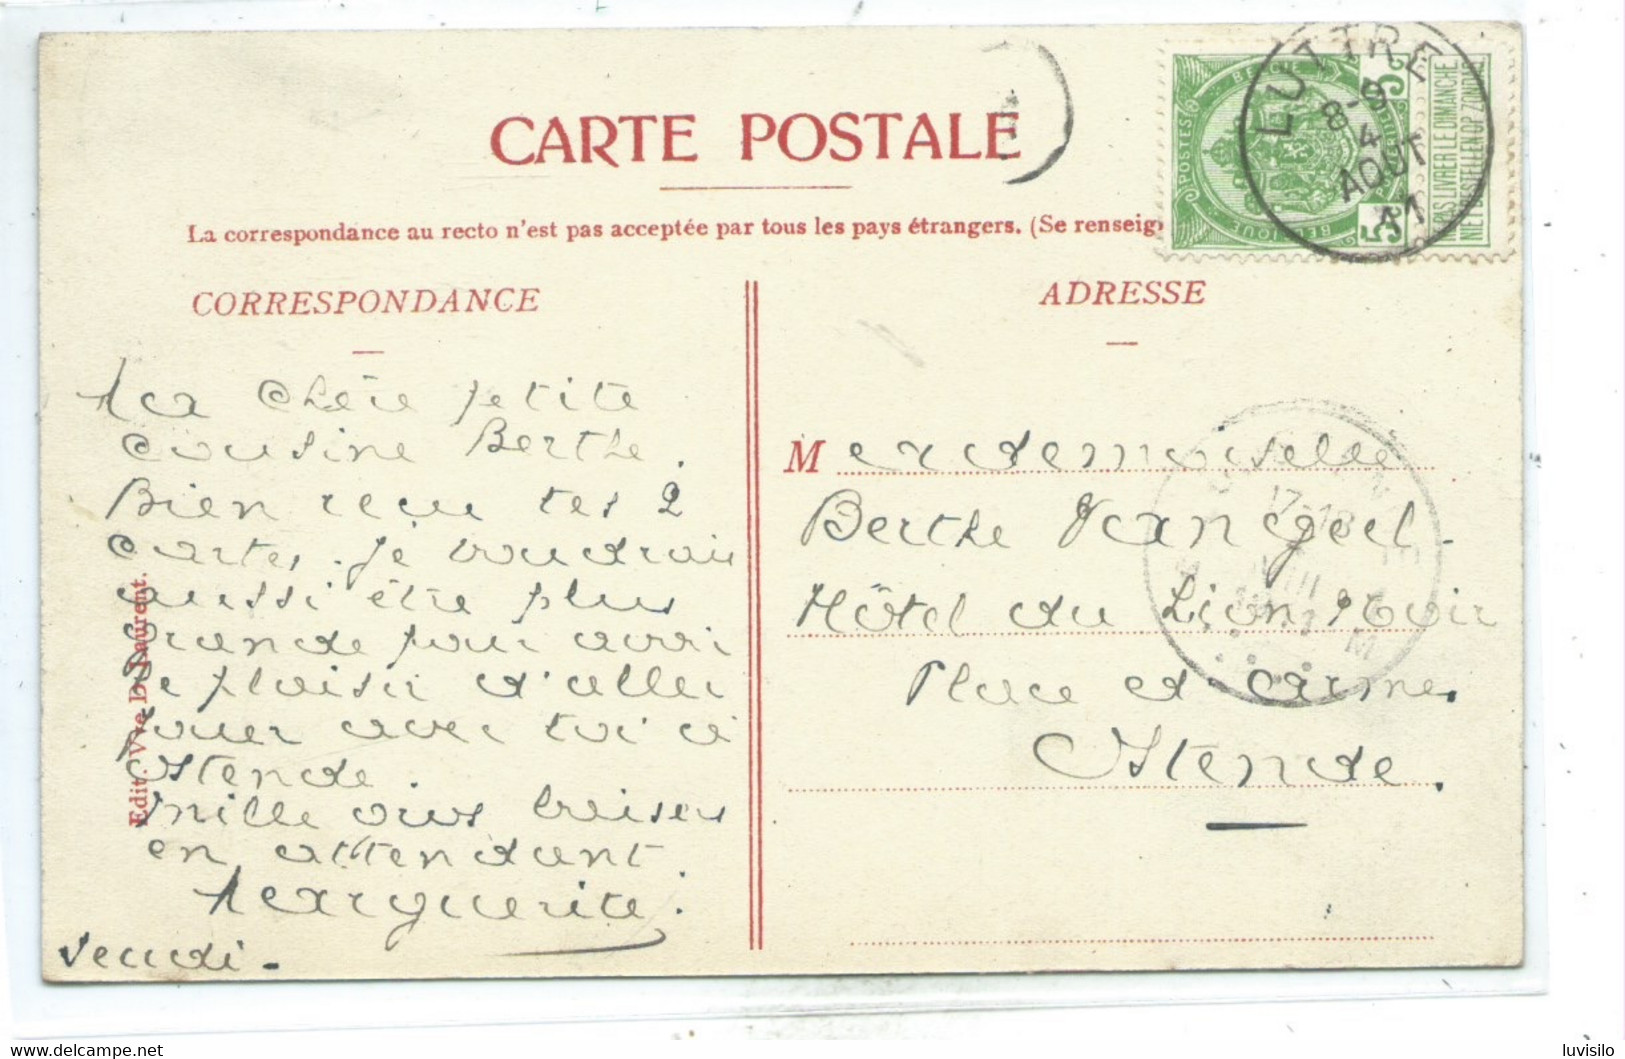 CARTE POSTALE
La correspondance au recto n'est pas acceptée par tous les pays étrangers. (Se renseig
CORRESPONDANCE
Ma Chère petite
Cousine Berthe.
Bien reçu tes 2
Cartes. Je voudrais
aussi être plus
Grande pour avoir
le plaisir d'aller
jouer avec toi à
Ostende.
Mille bons baisers
en attendant.
Marguerite.
Jeudi -
Edit. Vve D. Laurent.
ADRESSE
Mademoiselle
Berthe Vangeel.
Hôtel du Lion Noir
Place d'armes
Ostende.
LUTTRE
8-9
4
AOUT
11
POSTES
BELGIE
BELGIQUE
5
5
NE PAS LIVRER LE DIMANCHE
NIET BESTELLEN OP ZONDAG
17-18
VIII
delcampe.net
luvisilo